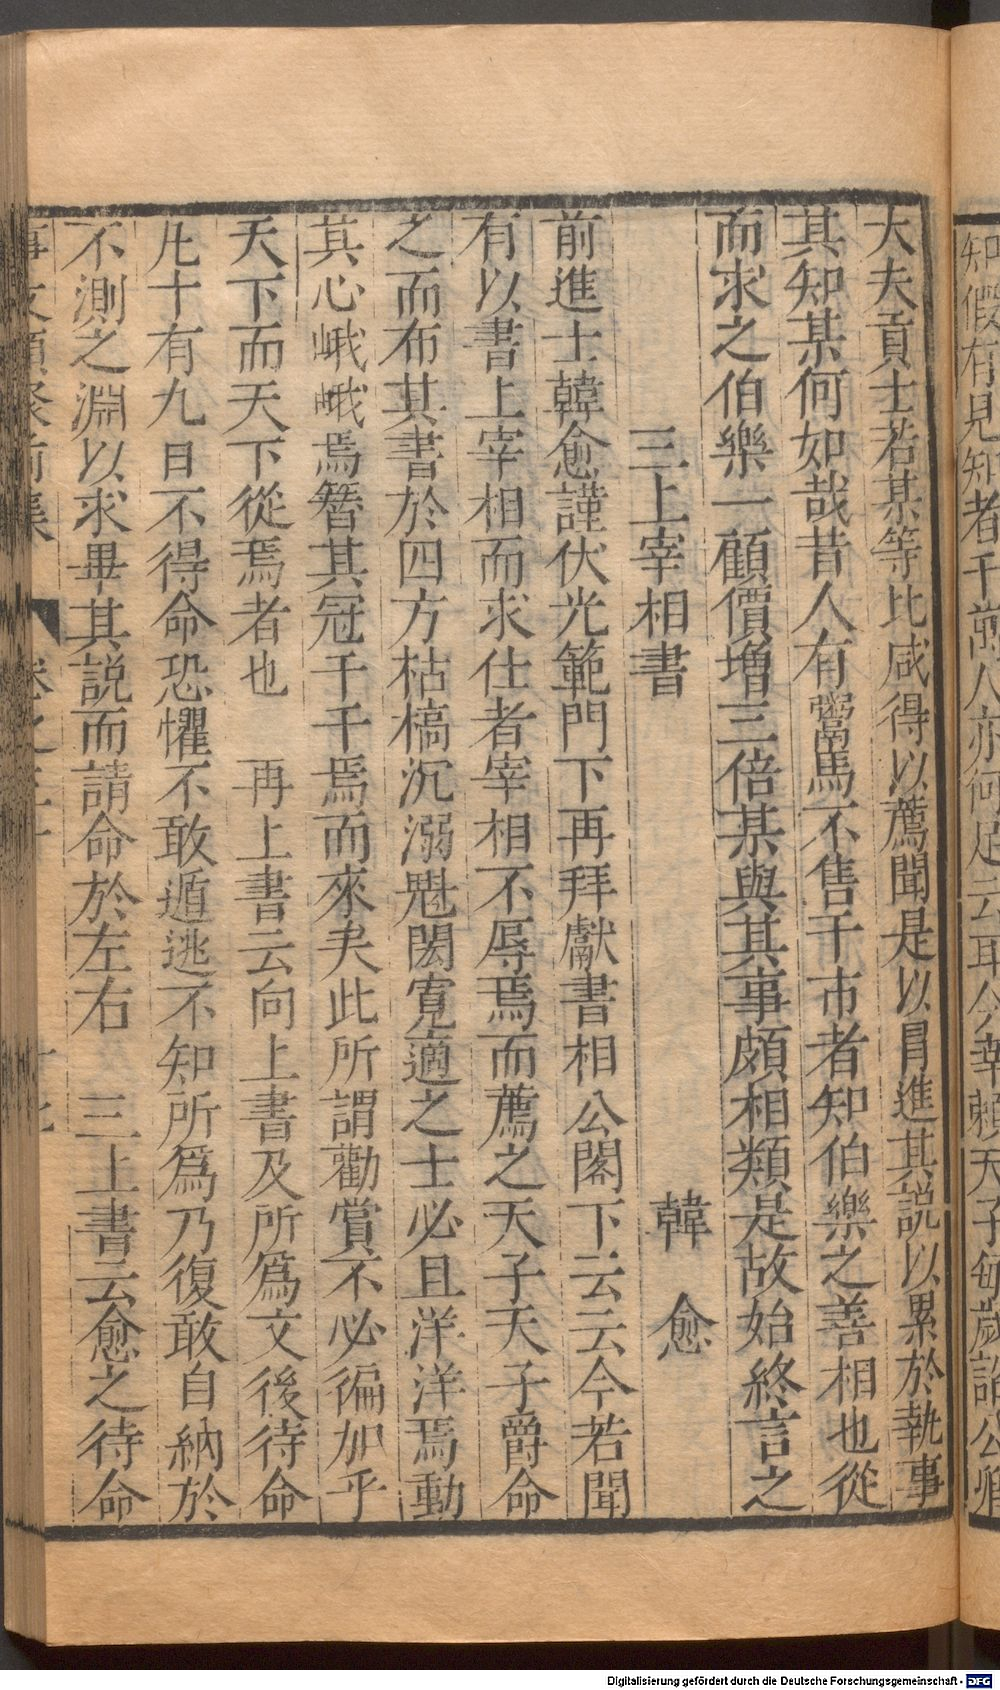 知假有見知者千萬人亦何足云耳公幸賴天子每歲詔公卿
大夫貢士若某等比咸得以薦聞是以冒進其説以累於執事
其知某何如哉昔人有鬻馬不售于市者知伯樂之善相也從
而求之伯樂一顧價增三倍某與其事頗相類是故始終言之
三上宰相書 韓 愈
前進士韓愈謹伏光範門下再拜獻書相公閣下云云今若聞
有以書上宰相而求仕者宰相不辱焉而薦之天子天子爵命
之而布其書於四方枯槁沉溺魁閎寬適之士必且洋洋焉動
其心峨峨焉簪其冠千千焉而來矣此所謂勸賞不必徧加乎
天下而天下從焉者也 再上書云向上書及所爲文後待命
凡十有九日不得命恐懼不敢遁逃不知所爲乃復敢自納於
不測之淵以求畢其説而請命於左右 三上書云愈之待命
事文類聚前集 卷之三十
Digitalisierung gefördert durch die Deutsche Forschungsgemeinschaft - DFG